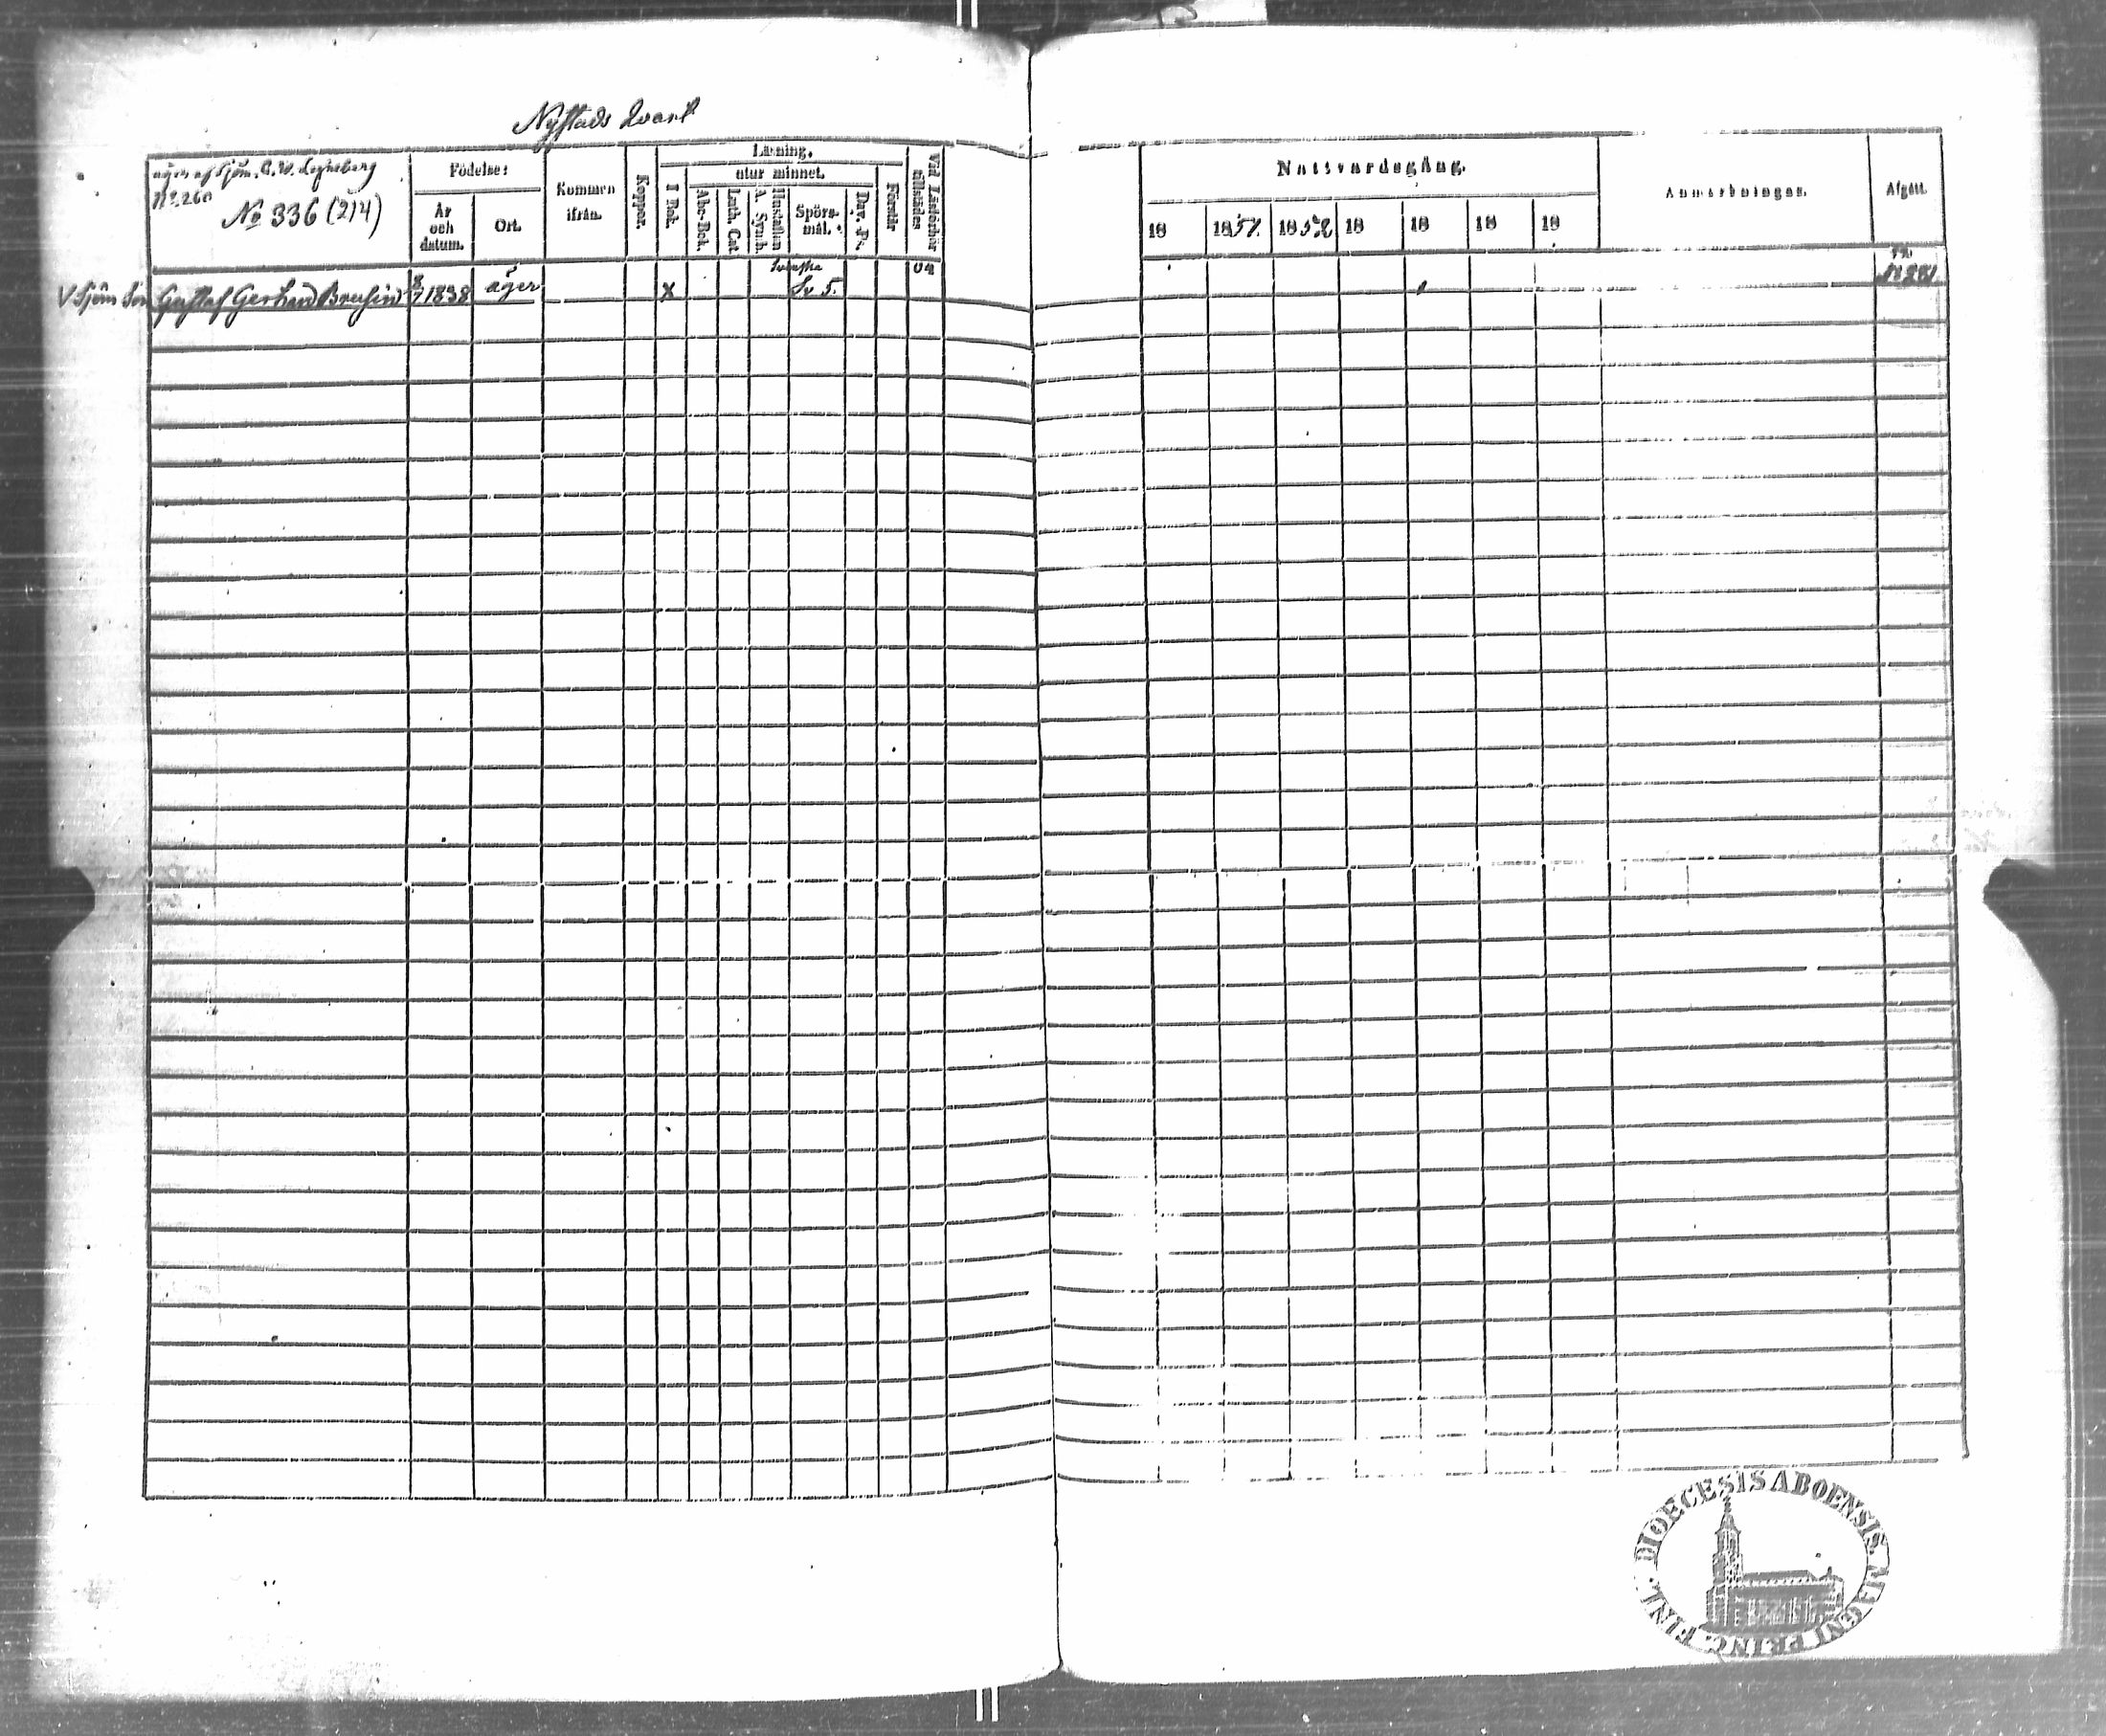 Nystads Qvart
äges af Sjöm. C. W.
No 260
No 336 (214)
Födelse:
År och datum.
Ort.
Kommen ifrån.
Koppor.
Läsning.
I Bok.
utur minnet.
Abc-Bok.
Luth. Cat.
Hustaflan A. Symb.
Spörsmål.
Dav. Ps.
Förstår
Vid Läsförhör tillstädes
Nattvardsgång.
18 1851. 1852 18 18 18 18
Anmärkningar.
Afgått.
Svenska
V Sjöm Son Gustaf Gerhard Brusin 8/7 1838 x Sv 5.
DIOECESIS ABOENSIS. MAGNI PRINC. FINL.